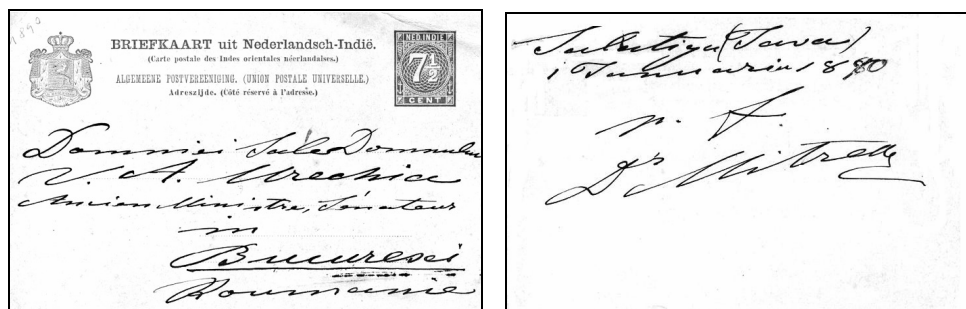 1890
BRIEFKAART uit Nederlandsch-Indië.
(Carte postale des Indes orientales néerlandaises.)
ALGEMEENE POSTVEREENIGING. (UNION POSTALE UNIVERSELLE.)
Adreszijde. (Côté réservé à l'adresse.)
NED. INDIE
7½
CENT
Domniei Sale Domnului
V. A. Urechia
Ancien Ministre, Sénateur
in
Bucuresci
Roumanie
Salatiga (Java)
1 Januarie 1890
p. f.
Dr Mitrea